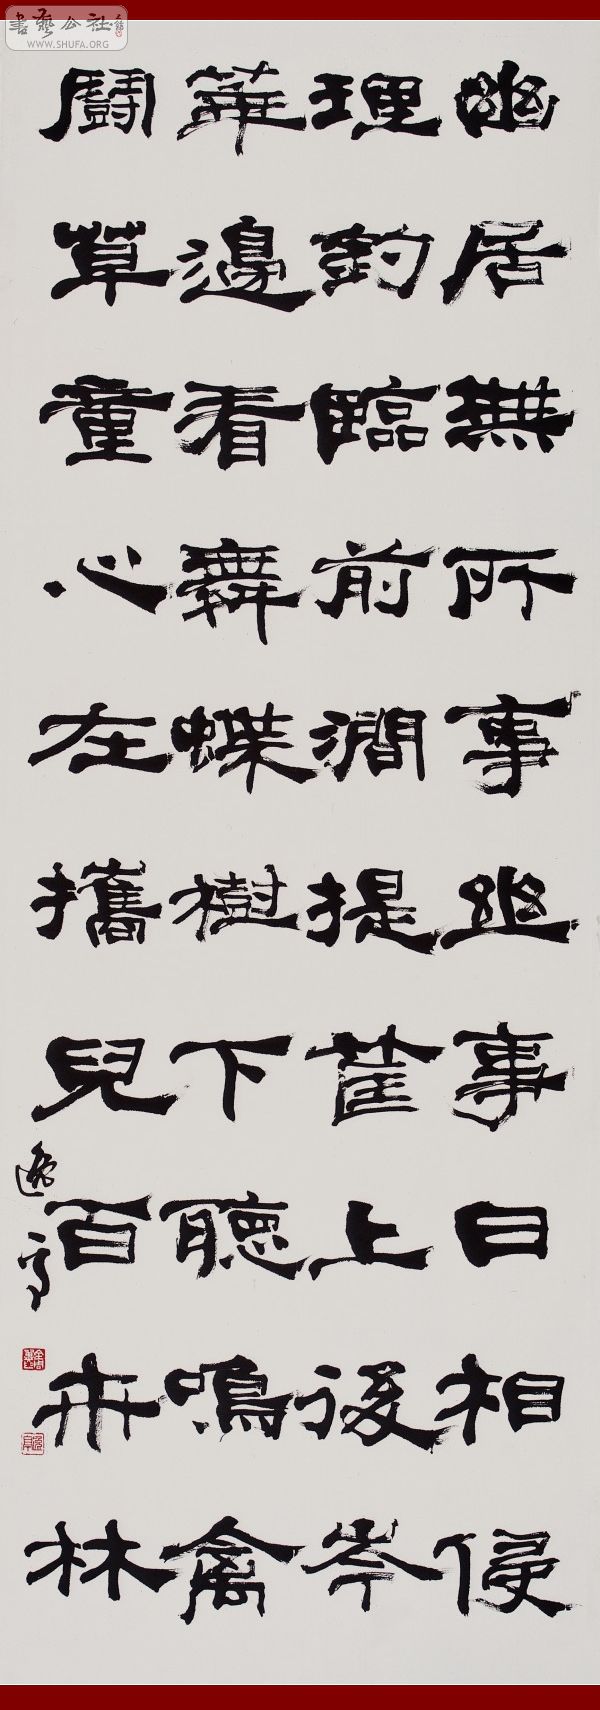 書藝公社
WWW.SHUFA.ORG
幽居無所事幽事日相侵
理釣臨前澗提筐上後岑
華邊看舞蝶樹下聽鳴禽
鬭草童心在攜兒百卉林